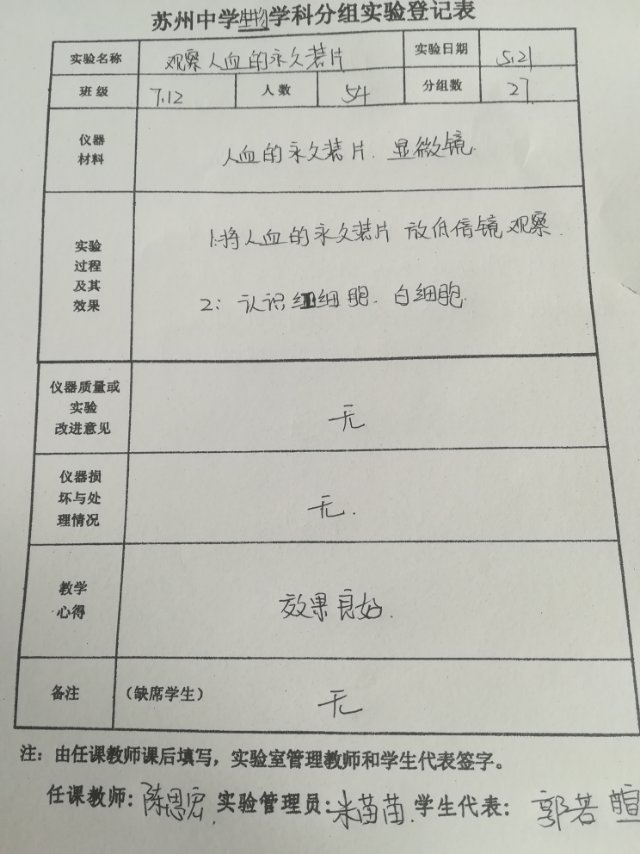 苏州中学生物学科分组实验登记表
实验名称 观察人血的永久装片 实验日期 5.21
班级 7.12 人数 54 分组数 27
仪器
材料
人血的永久装片. 显微镜.
实验
过程
及其
效果
1:将人血的永久装片 放低倍镜观察.
2: 认识红细胞. 白细胞.
仪器质量或
实验
改进意见
无
仪器损
坏与处
理情况
无.
教学
心得
效果良好.
备注 (缺席学生) 无
注：由任课教师课后填写，实验室管理教师和学生代表签字。
任课教师: 陈思宏 实验管理员: 米苗苗. 学生代表: 郭若暄